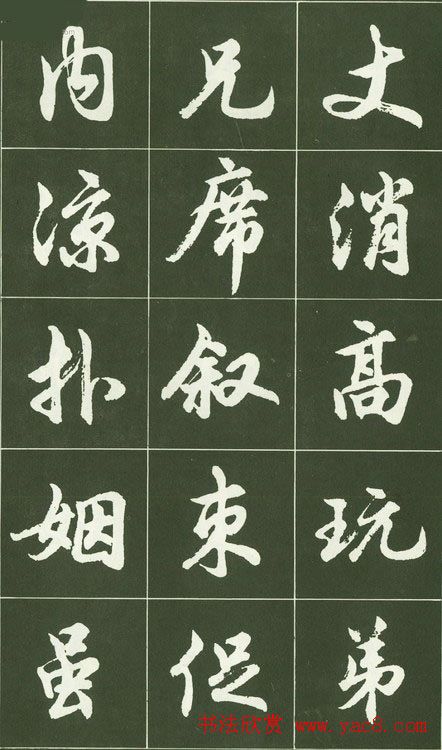 丈消高玩弟
兄席叙束促
内凉扑姻虽
书法欣赏 www.yac8.com